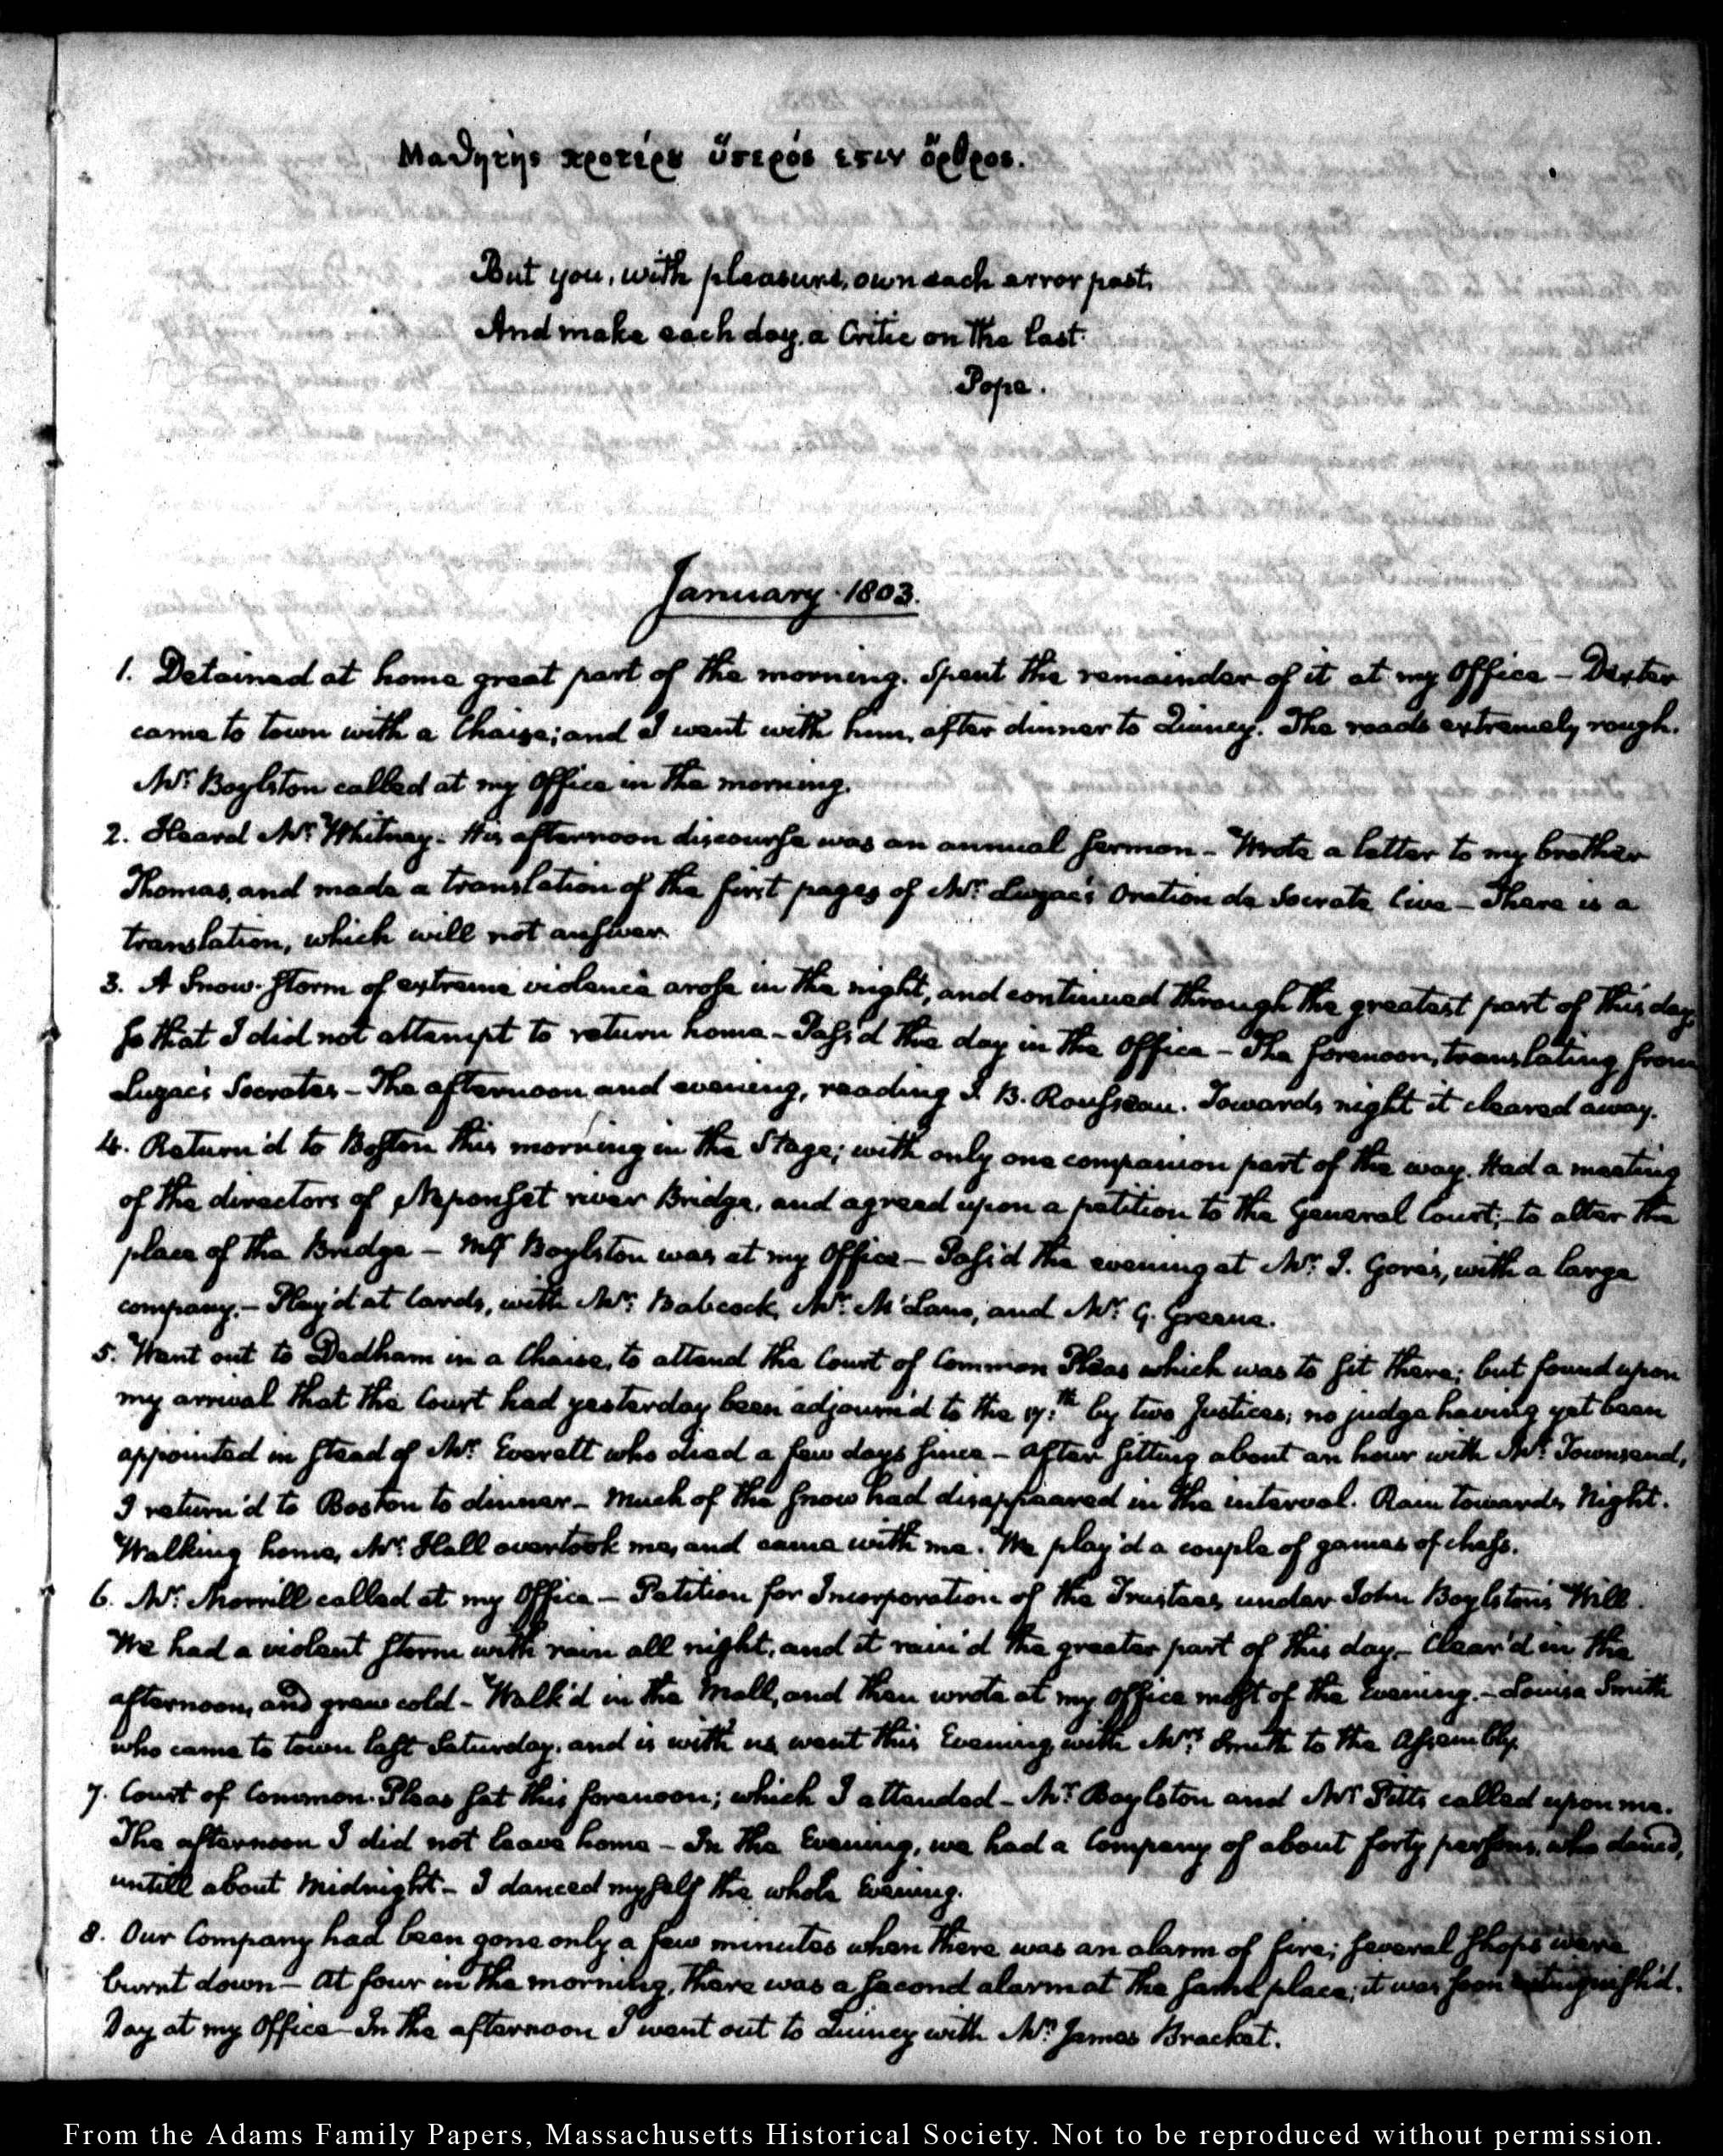 Μαθητὴς προτέρου ὕστερός ἐστιν ὄρθρος.
But you, with pleasure, own each error past,
And make each day, a Critic on the last.
Pope.
January 1803.
1. Detained at home great part of the morning. Spent the remainder of it at my Office – Dexter
came to town with a Chaise; and I went with him, after dinner to Quincy. The roads extremely rough.
Mr. Boylston called at my Office in the morning.
2. Heard Mr. Whitney. His afternoon discourse was an annual sermon – Wrote a letter to my brother
Thomas, and made a translation of the first pages of Mr. Luzac's Oration de Socrate Cive – There is a
translation, which will not answer.
3. A Snow-storm of extreme violence arose in the night, and continued through the greatest part of this day,
so that I did not attempt to return home – Pass'd the day in the Office – The forenoon, translating from
Luzac's Socrates – The afternoon, and evening, reading J. B. Rousseau. Towards night it cleared away.
4. Return'd to Boston this morning in the Stage; with only one companion part of the way. Had a meeting
of the directors of Neponset river Bridge, and agreed upon a petition to the General Court; to alter the
place of the Bridge – Boylston was at my Office – Pass'd the evening at Mr. J. Gore's, with a large
company. – Play'd at Cards, with Mr. Babcock, Mr. McLane, and Mr. G. Greene.
5. Went out to Dedham in a Chaise, to attend the Court of Common Pleas which was to sit there; but found upon
my arrival that the Court had yesterday been adjourn'd to the 17.th by two Justices; no judge having yet been
appointed in stead of Mr. Everett who died a few days since – After sitting about an hour with Mr. Townsend,
I return'd to Boston to dinner – Much of the snow had disappeared in the interval. Rain towards Night.
Walking home, Mr. Hall overtook me, and came with me. We play'd a couple of games of chess.
6. Mr. Morrill called at my Office – Petition for Incorporation of the Trustees under John Boylston's Will.
We had a violent storm with rain all night, and it rain'd the greater part of this day – Clear'd in the
afternoon, and grew cold – Walk'd in the Mall, and then wrote at my Office most of the Evening. – Louisa Smith
who came to town last Saturday, and is with us, went this Evening with Mrs. Smith to the Assembly.
7. Court of Common-Pleas sat this forenoon; which I attended – Mr. Boylston and Mr. Pitts called upon me.
The afternoon I did not leave home – In the Evening, we had a Company of about forty persons, who danced,
untill about Midnight – I danced myself the whole Evening.
8. Our Company had been gone only a few minutes when there was an alarm of fire; several shops were
burnt down – At four in the morning, there was a second alarm at the same place; it was soon extinguish'd.
Day at my Office – In the afternoon I went out to Quincy with Mr. James Bracket.
From the Adams Family Papers, Massachusetts Historical Society. Not to be reproduced without permission.